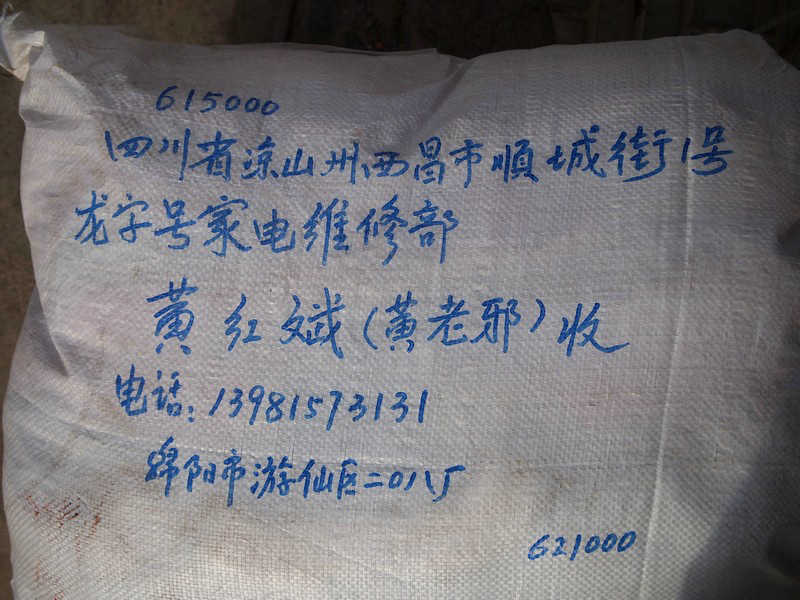 615000
四川省凉山州西昌市顺城街1号
龙字号家电维修部
黄红斌(黄老邪)收
电话:13981573131
绵阳市游仙区二0八厂
621000